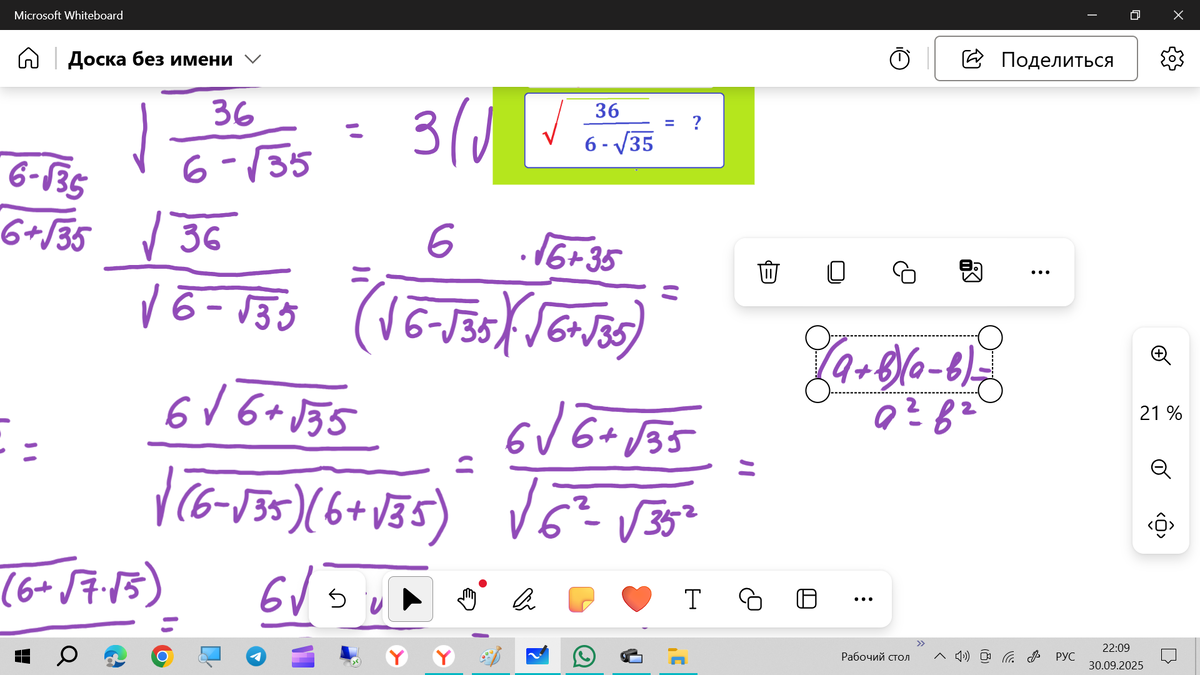 Microsoft Whiteboard
Доска без имени
Поделиться
√(36/(6-√35)) = 3(√
√(36/(6 - √35)) = ?
6-√35
6+√35
√36/√(6-√35) = 6 · √6+35/((√6-√35)·(√6+√35)) =
(a+b)(a-b)=
a²-b²
= 6√(6+√35)/√((6-√35)(6+√35)) = 6√(6+√35)/√(6²-√35²) =
21 %
(6+√7·√5) = 6√
T
Рабочий стол
РУС
22:09
30.09.2025